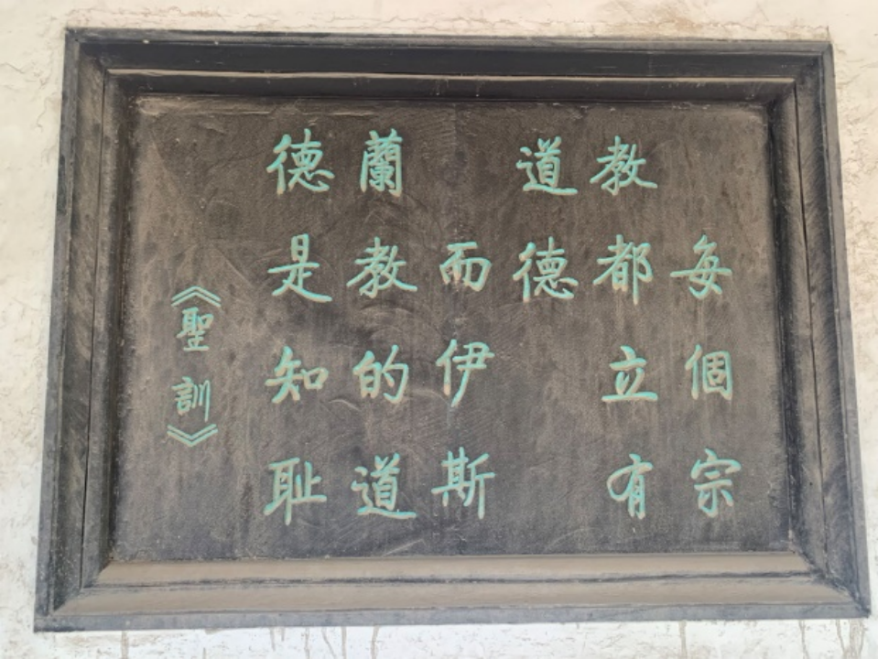 每個宗
教都立有
道德
而伊斯
蘭教的道
德是知耻
《聖訓》